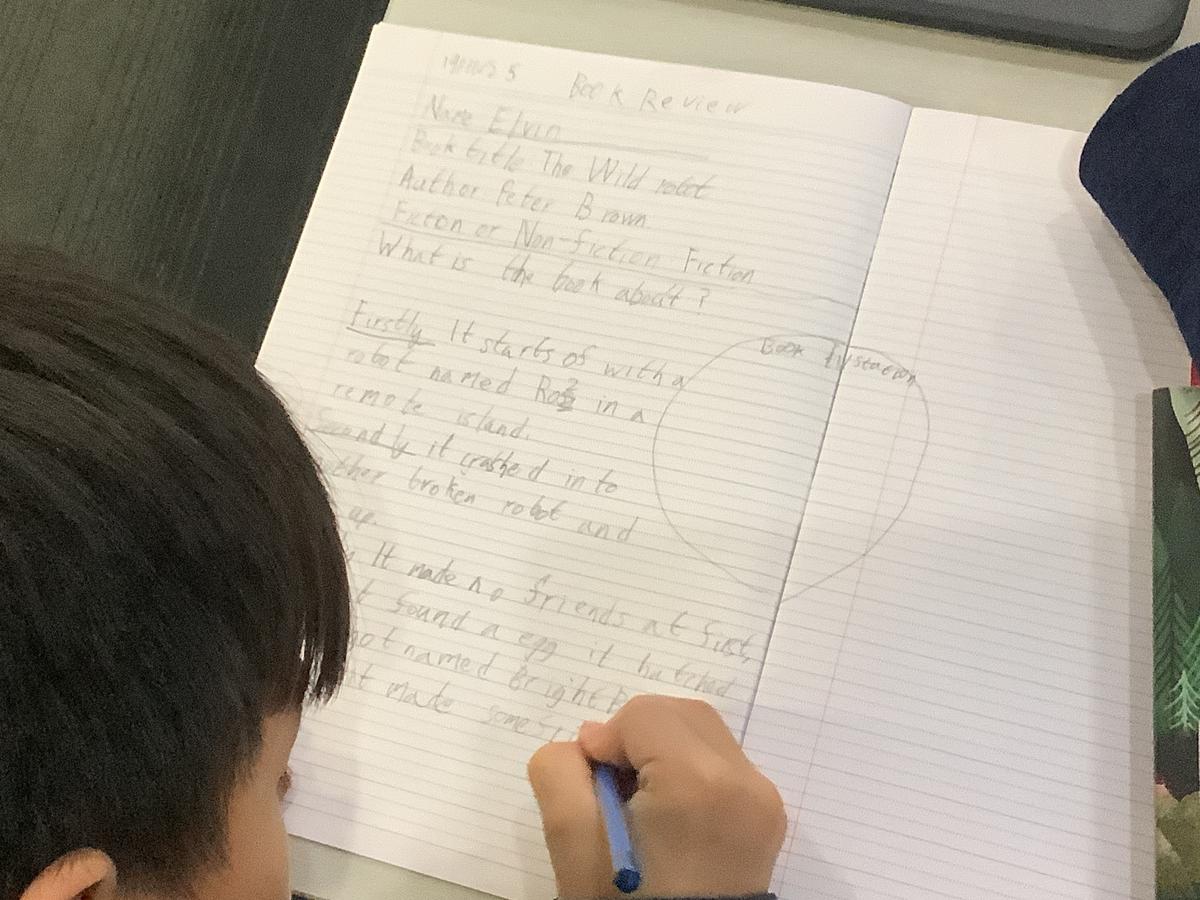 Book Review
Name Elvin
Book title The Wild robot
Author Peter Brown
Ficton or Non-fiction Fiction
What is the book about?
Firstly It starts of with a
robot named Roz in a
remote island.
it crashed in to
broken robot and
up.
It made no friends at first,
found a egg it hatched
named Bright
made some
Book